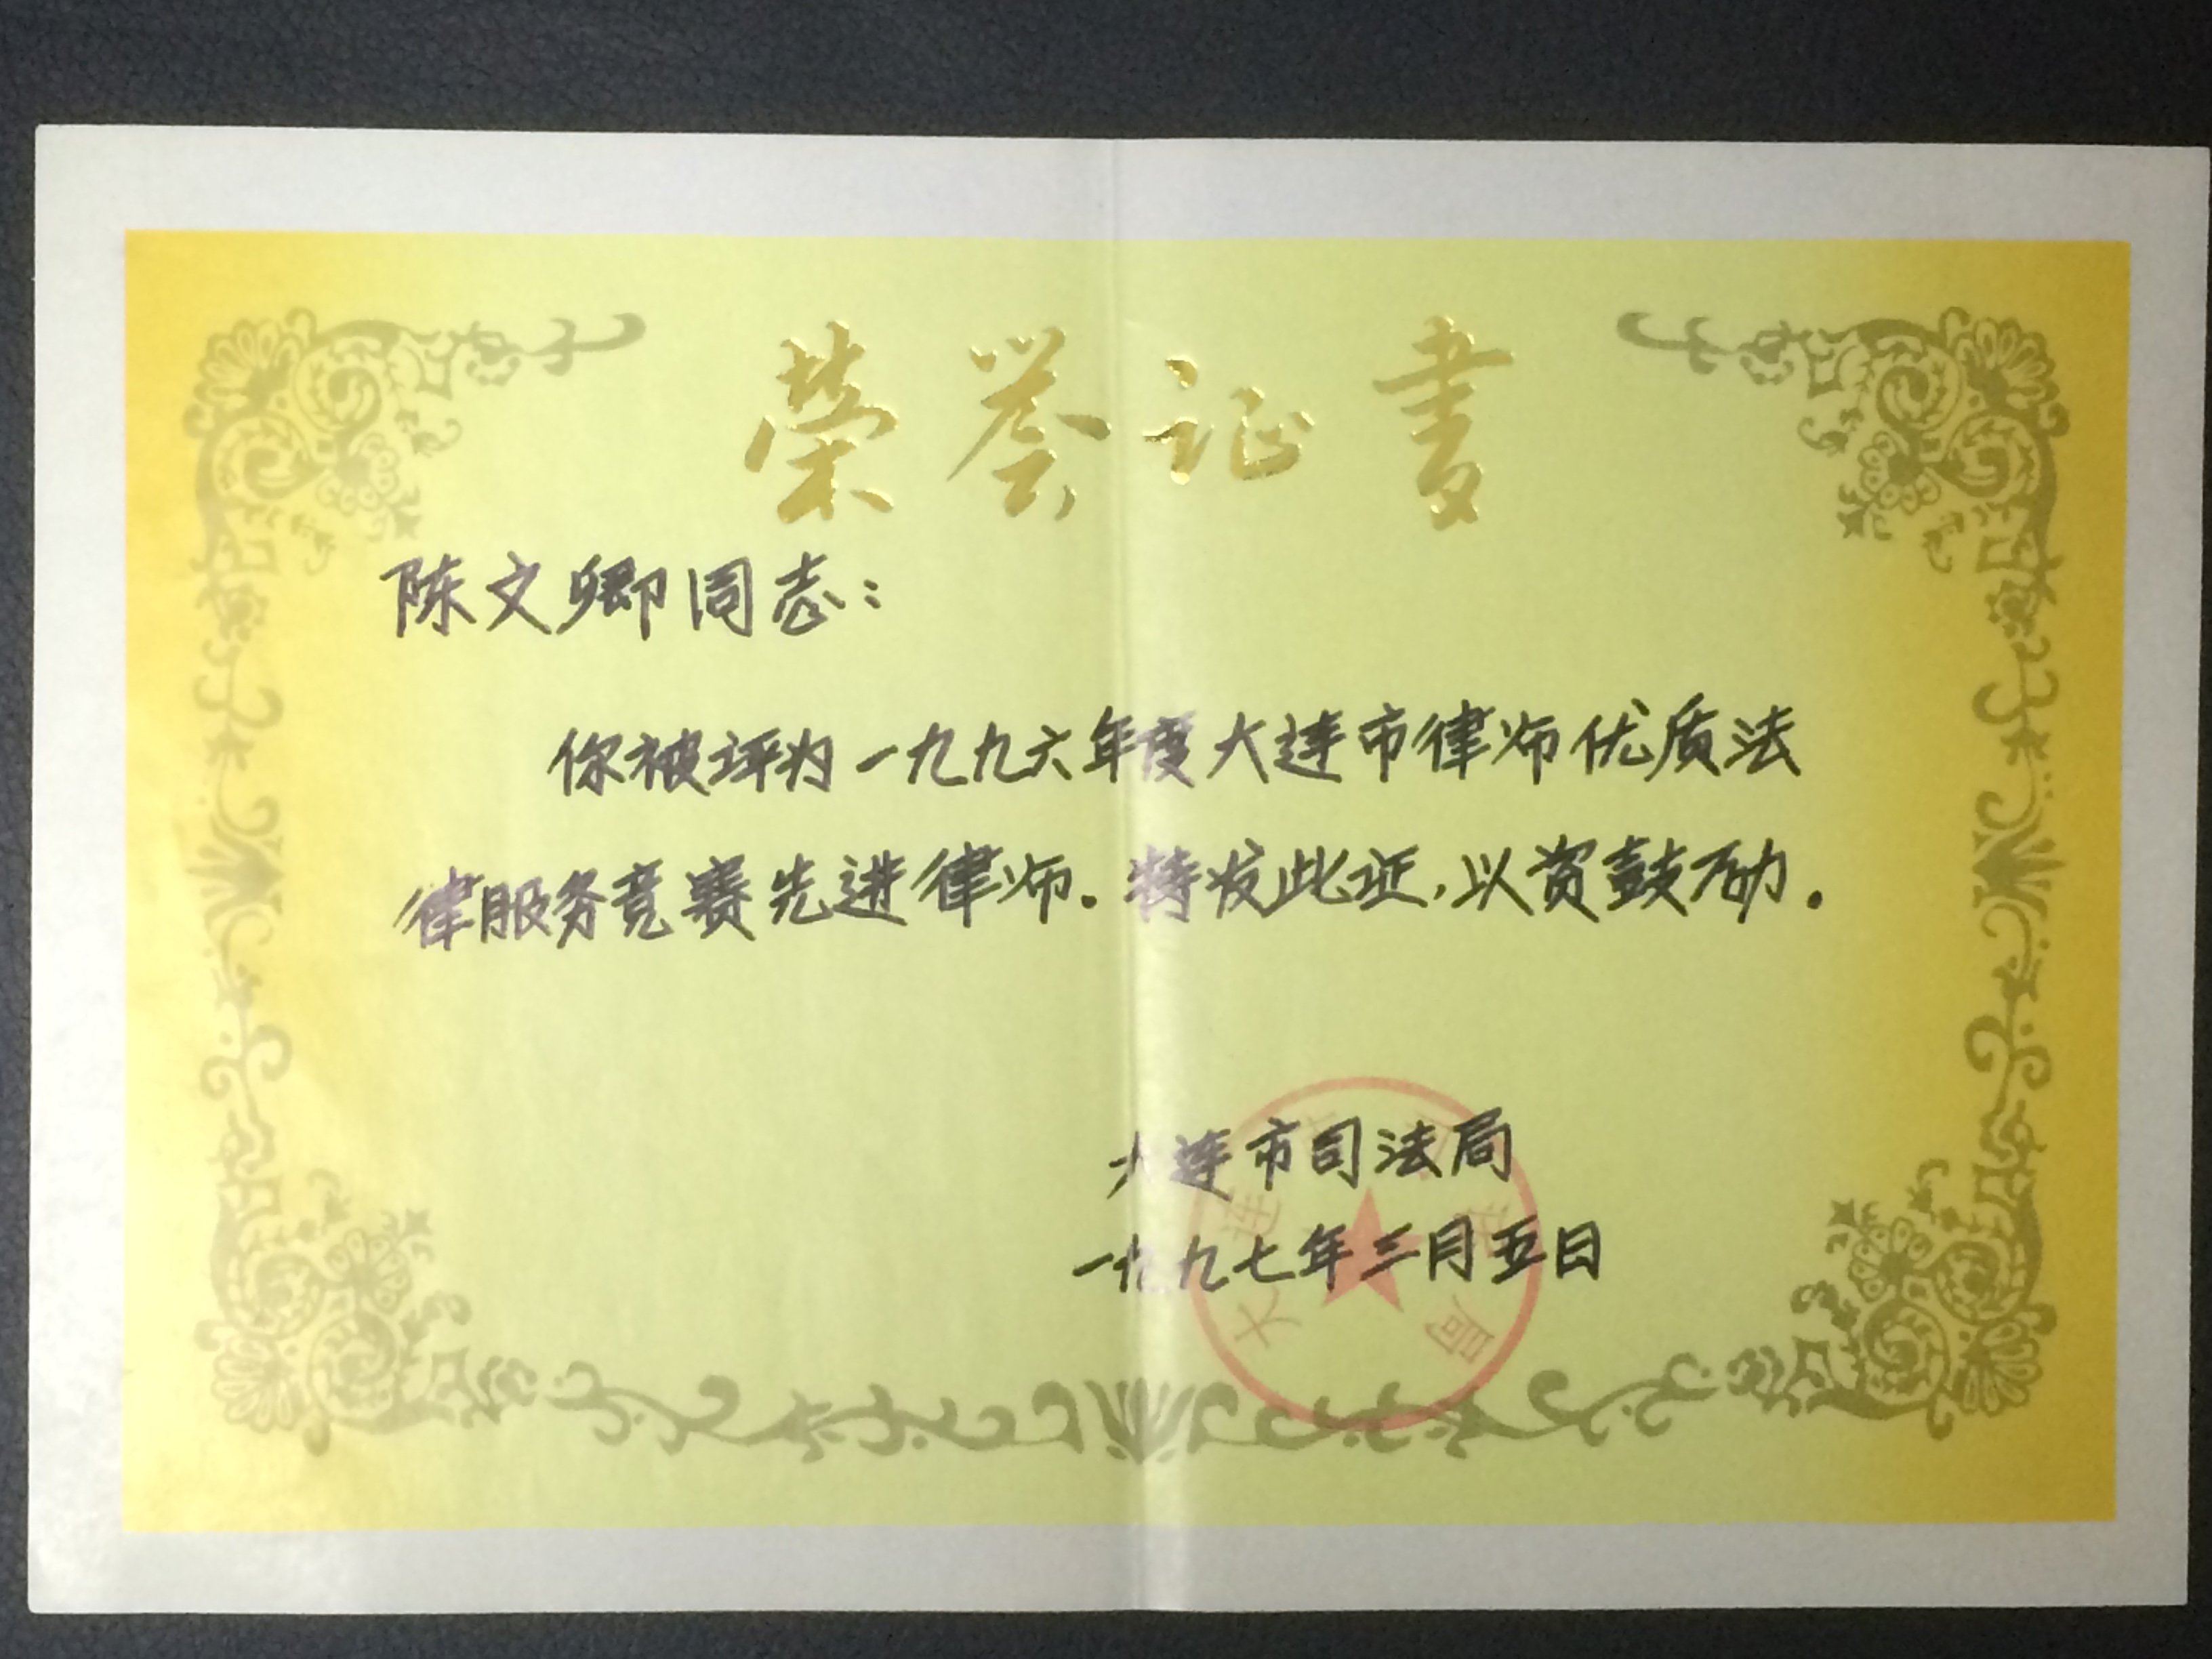 荣誉证书
陈文卿同志：
你被评为一九九六年度大连市律师优质法
律服务竞赛先进律师。特发此证，以资鼓励。
大连市司法局
一九九七年三月五日
大连市司法局